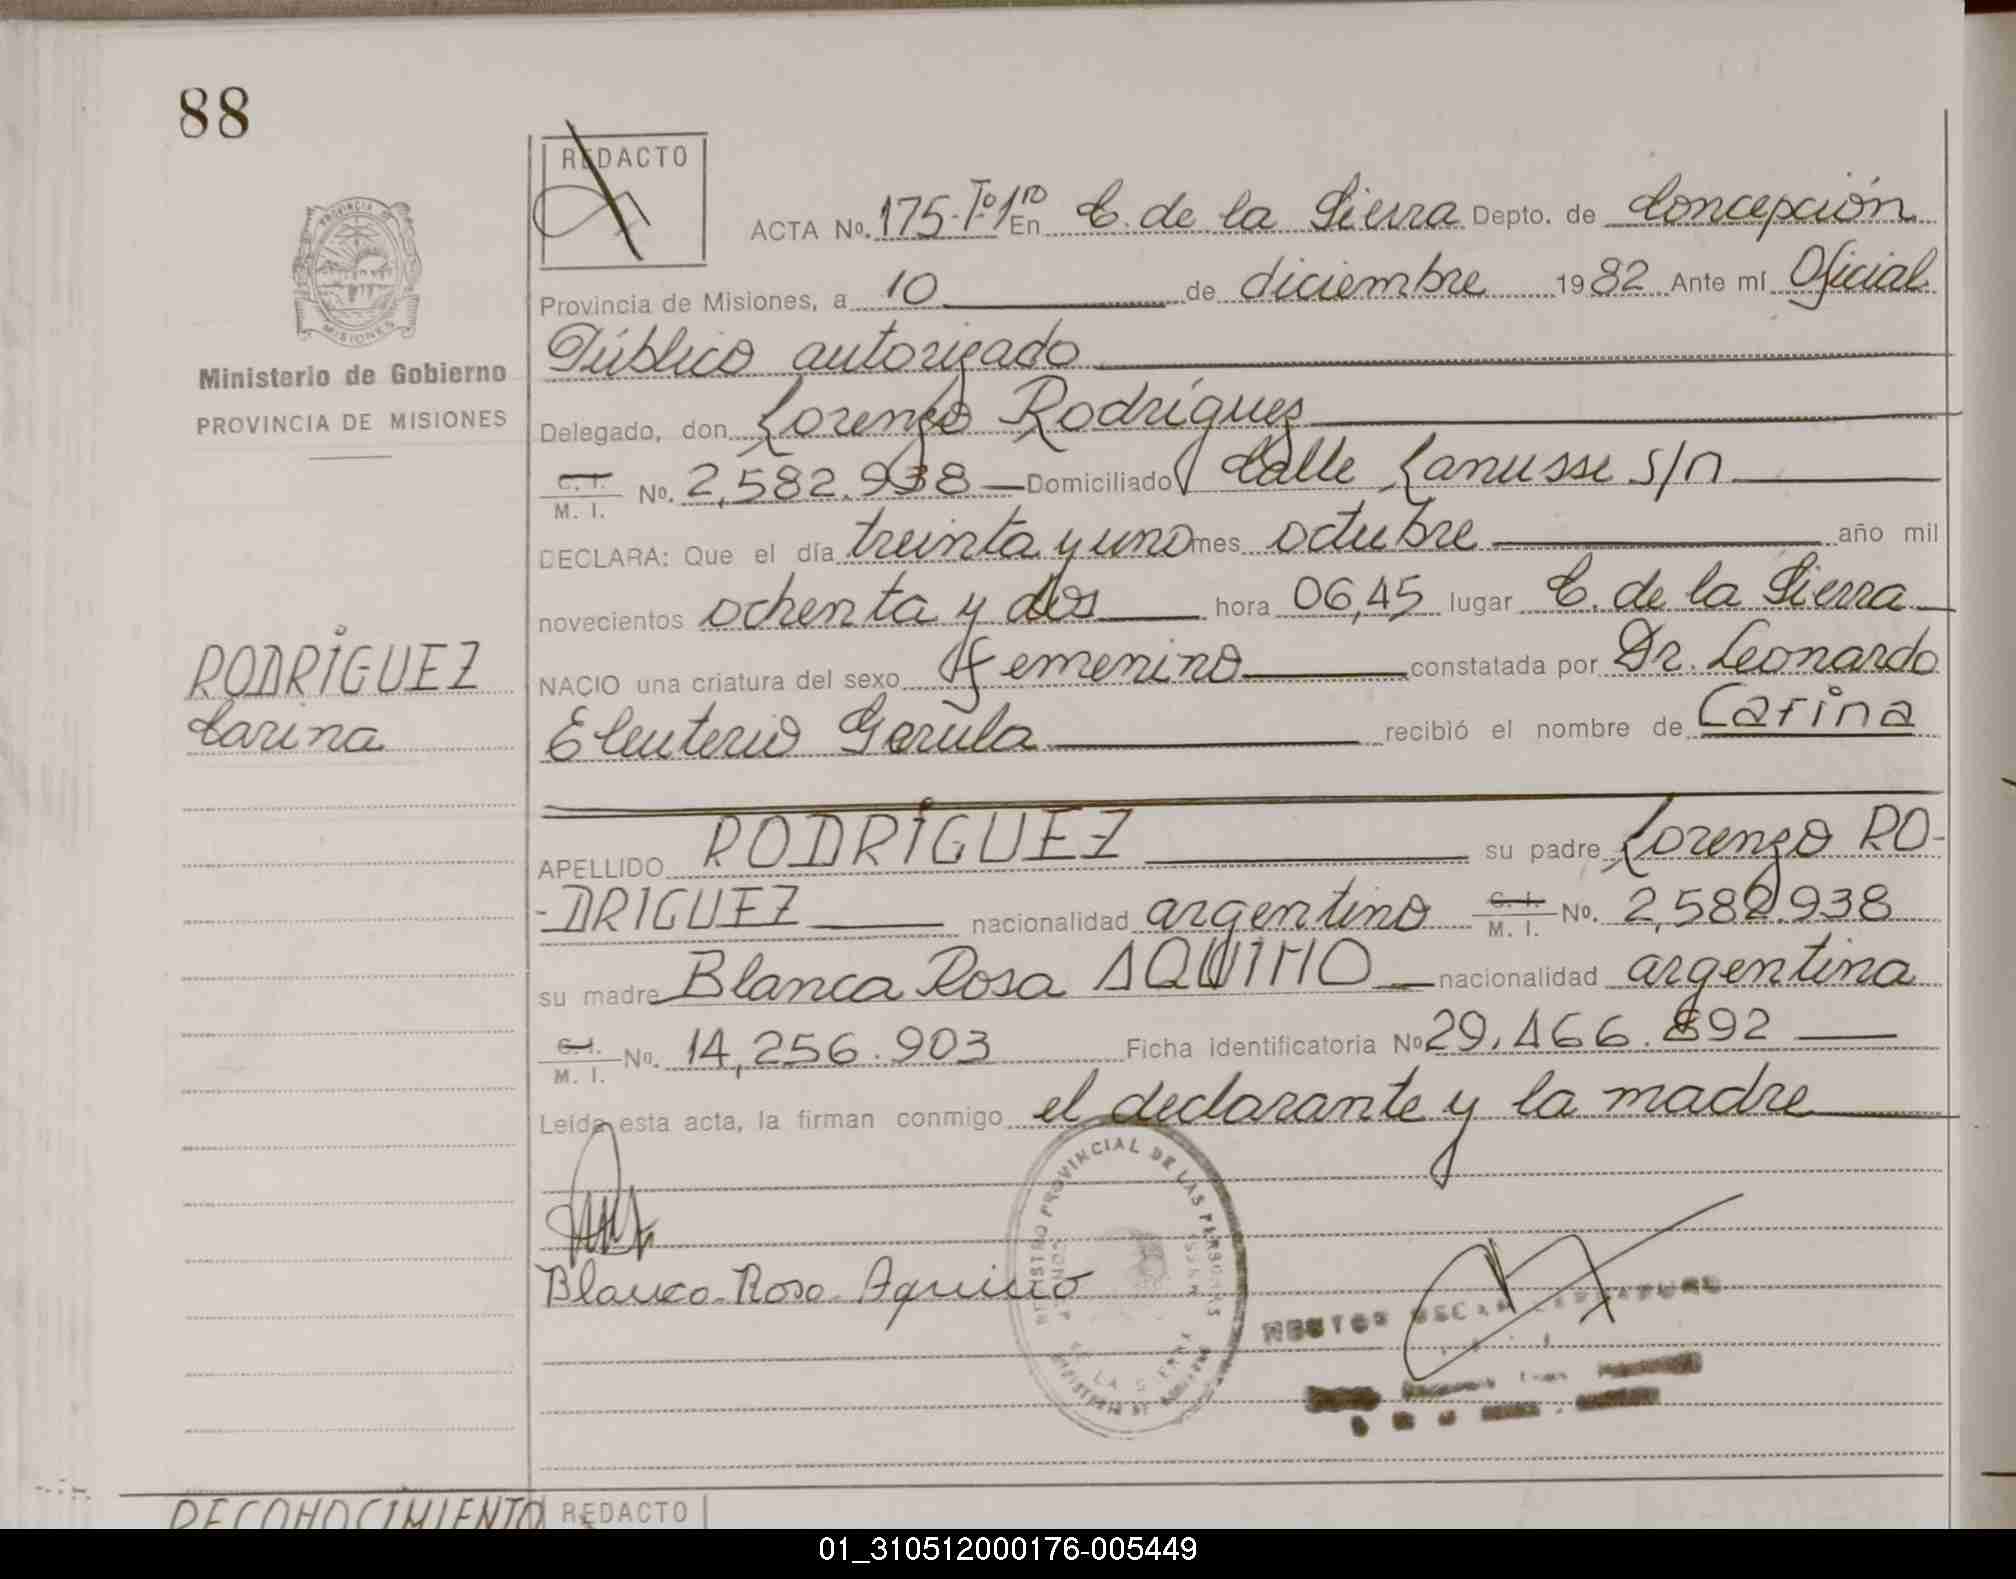 88
REDACTO
PROVINCIA DE
MISIONES
Ministerio de Gobierno
PROVINCIA DE MISIONES
RODRÍGUEZ
Carina
ACTA No. 175-Tº1ro En C. de la Sierra Depto. de Concepción
Provincia de Misiones, a 10 de diciembre 1982 Ante mí Oficial
Público autorizado
Delegado, don Lorenzo Rodríguez
C. I.
M. I. No. 2,582.938 Domiciliado Calle Lanusse S/n
DECLARA: Que el día treinta y uno mes octubre año mil
novecientos ochenta y dos hora 06,45 lugar C. de la Sierra
NACIO una criatura del sexo femenino constatada por Dr. Leonardo
Eleuterio Gerula recibió el nombre de Carina
APELLIDO RODRÍGUEZ su padre Lorenzo RO-
-DRIGUEZ nacionalidad argentino C. I.
M. I. No. 2,582.938
su madre Blanca Rosa AQUINO nacionalidad argentina
C. I.
M. I. No. 14,256.903 Ficha identificatoria No 29.466.892
Leída esta acta, la firman conmigo el declarante y la madre
Blanca Rosa Aquino
REGISTRO PROVINCIAL DE LAS PERSONAS
LA SIERRA
MINISTERIO DE GOBIERNO
NESTOR OSCAR
RECONOCIMIENTO REDACTO
01_310512000176-005449